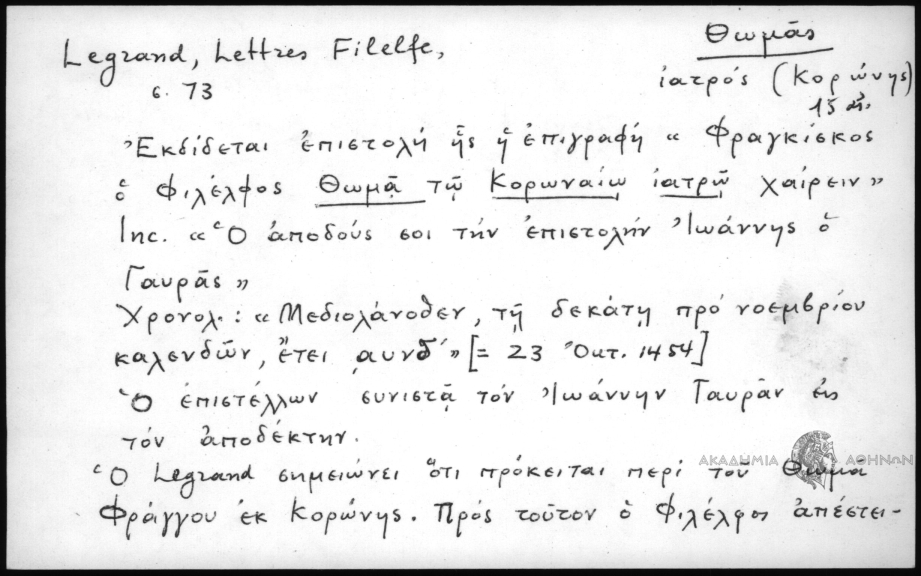 Legrand, Lettres Filelfe,
σ. 73
Θωμᾶς
ἰατρός (Κορώνης)
15 αἰ.
Ἐκδίδεται ἐπιστολή ἧς ἡ ἐπιγραφή « Φραγκίσκος
ὁ Φιλέλφος Θωμᾷ τῷ Κορωναίῳ ἰατρῷ χαίρειν »
Inc. « Ὁ ἀποδούς σοι τήν ἐπιστολήν Ἰωάννης ὁ
Γαυρᾶς »
Χρονολ.: « Μεδιολάνοθεν, τῇ δεκάτῃ πρό νοεμβρίου
καλενδῶν, ἔτει ͵αυνδ´ » [= 23 Ὀκτ. 1454]
Ὁ ἐπιστέλλων συνιστᾷ τόν Ἰωάννην Γαυρᾶν εἰς
τόν ἀποδέκτην.
Ὁ Legrand σημειώνει ὅτι πρόκειται περί τοῦ Θωμᾶ
Φράγγου ἐκ Κορώνης. Πρός τοῦτον ὁ Φιλέλφος ἀπέστει-
ΑΚΑΔΗΜΙΑ ΑΘΗΝΩΝ